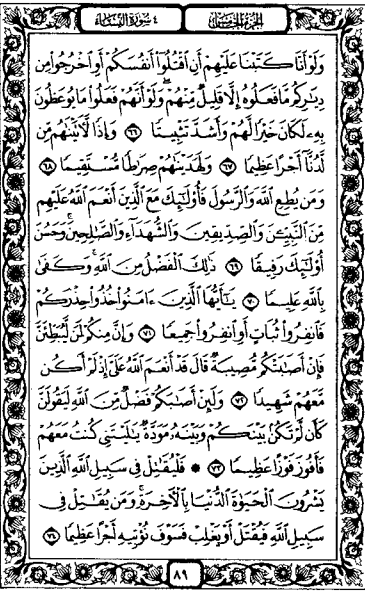 الجزء الخامس
٤ سورة النساء
وَلَوْ أَنَّا كَتَبْنَا عَلَيْهِمْ أَنِ ٱقْتُلُوٓا۟ أَنفُسَكُمْ أَوِ ٱخْرُجُوا۟ مِن
دِيَـٰرِكُم مَّا فَعَلُوهُ إِلَّا قَلِيلٌ مِّنْهُمْ ۖ وَلَوْ أَنَّهُمْ فَعَلُوا۟ مَا يُوعَظُونَ
بِهِۦ لَكَانَ خَيْرًا لَّهُمْ وَأَشَدَّ تَثْبِيتًا ۝٦٦ وَإِذًا لَّـَٔاتَيْنَـٰهُم مِّن
لَّدُنَّآ أَجْرًا عَظِيمًا ۝٦٧ وَلَهَدَيْنَـٰهُمْ صِرَٰطًا مُّسْتَقِيمًا ۝٦٨
وَمَن يُطِعِ ٱللَّهَ وَٱلرَّسُولَ فَأُو۟لَـٰٓئِكَ مَعَ ٱلَّذِينَ أَنْعَمَ ٱللَّهُ عَلَيْهِم
مِّنَ ٱلنَّبِيِّـۧنَ وَٱلصِّدِّيقِينَ وَٱلشُّهَدَآءِ وَٱلصَّـٰلِحِينَ ۚ وَحَسُنَ
أُو۟لَـٰٓئِكَ رَفِيقًا ۝٦٩ ذَٰلِكَ ٱلْفَضْلُ مِنَ ٱللَّهِ ۚ وَكَفَىٰ
بِٱللَّهِ عَلِيمًا ۝٧٠ يَـٰٓأَيُّهَا ٱلَّذِينَ ءَامَنُوا۟ خُذُوا۟ حِذْرَكُمْ
فَٱنفِرُوا۟ ثُبَاتٍ أَوِ ٱنفِرُوا۟ جَمِيعًا ۝٧١ وَإِنَّ مِنكُمْ لَمَن لَّيُبَطِّئَنَّ
فَإِنْ أَصَـٰبَتْكُم مُّصِيبَةٌ قَالَ قَدْ أَنْعَمَ ٱللَّهُ عَلَىَّ إِذْ لَمْ أَكُن
مَّعَهُمْ شَهِيدًا ۝٧٢ وَلَئِنْ أَصَـٰبَكُمْ فَضْلٌ مِّنَ ٱللَّهِ لَيَقُولَنَّ
كَأَن لَّمْ تَكُنۢ بَيْنَكُمْ وَبَيْنَهُۥ مَوَدَّةٌ يَـٰلَيْتَنِى كُنتُ مَعَهُمْ
فَأَفُوزَ فَوْزًا عَظِيمًا ۝٧٣ ۞ فَلْيُقَـٰتِلْ فِى سَبِيلِ ٱللَّهِ ٱلَّذِينَ
يَشْرُونَ ٱلْحَيَوٰةَ ٱلدُّنْيَا بِٱلْـَٔاخِرَةِ ۚ وَمَن يُقَـٰتِلْ فِى
سَبِيلِ ٱللَّهِ فَيُقْتَلْ أَوْ يَغْلِبْ فَسَوْفَ نُؤْتِيهِ أَجْرًا عَظِيمًا ۝٧٤
٨٩